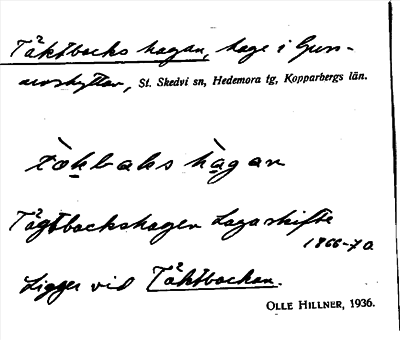 Täktbacks hagan, hage i Gun-
narshyttan, St. Skedvi sn, Hedemora tg, Kopparbergs län.
tòkbaks hàgan
Tägtbackshagen Laga skifte
1866-70.
Ligger vid Täktbackan.
OLLE HILLNER, 1936.